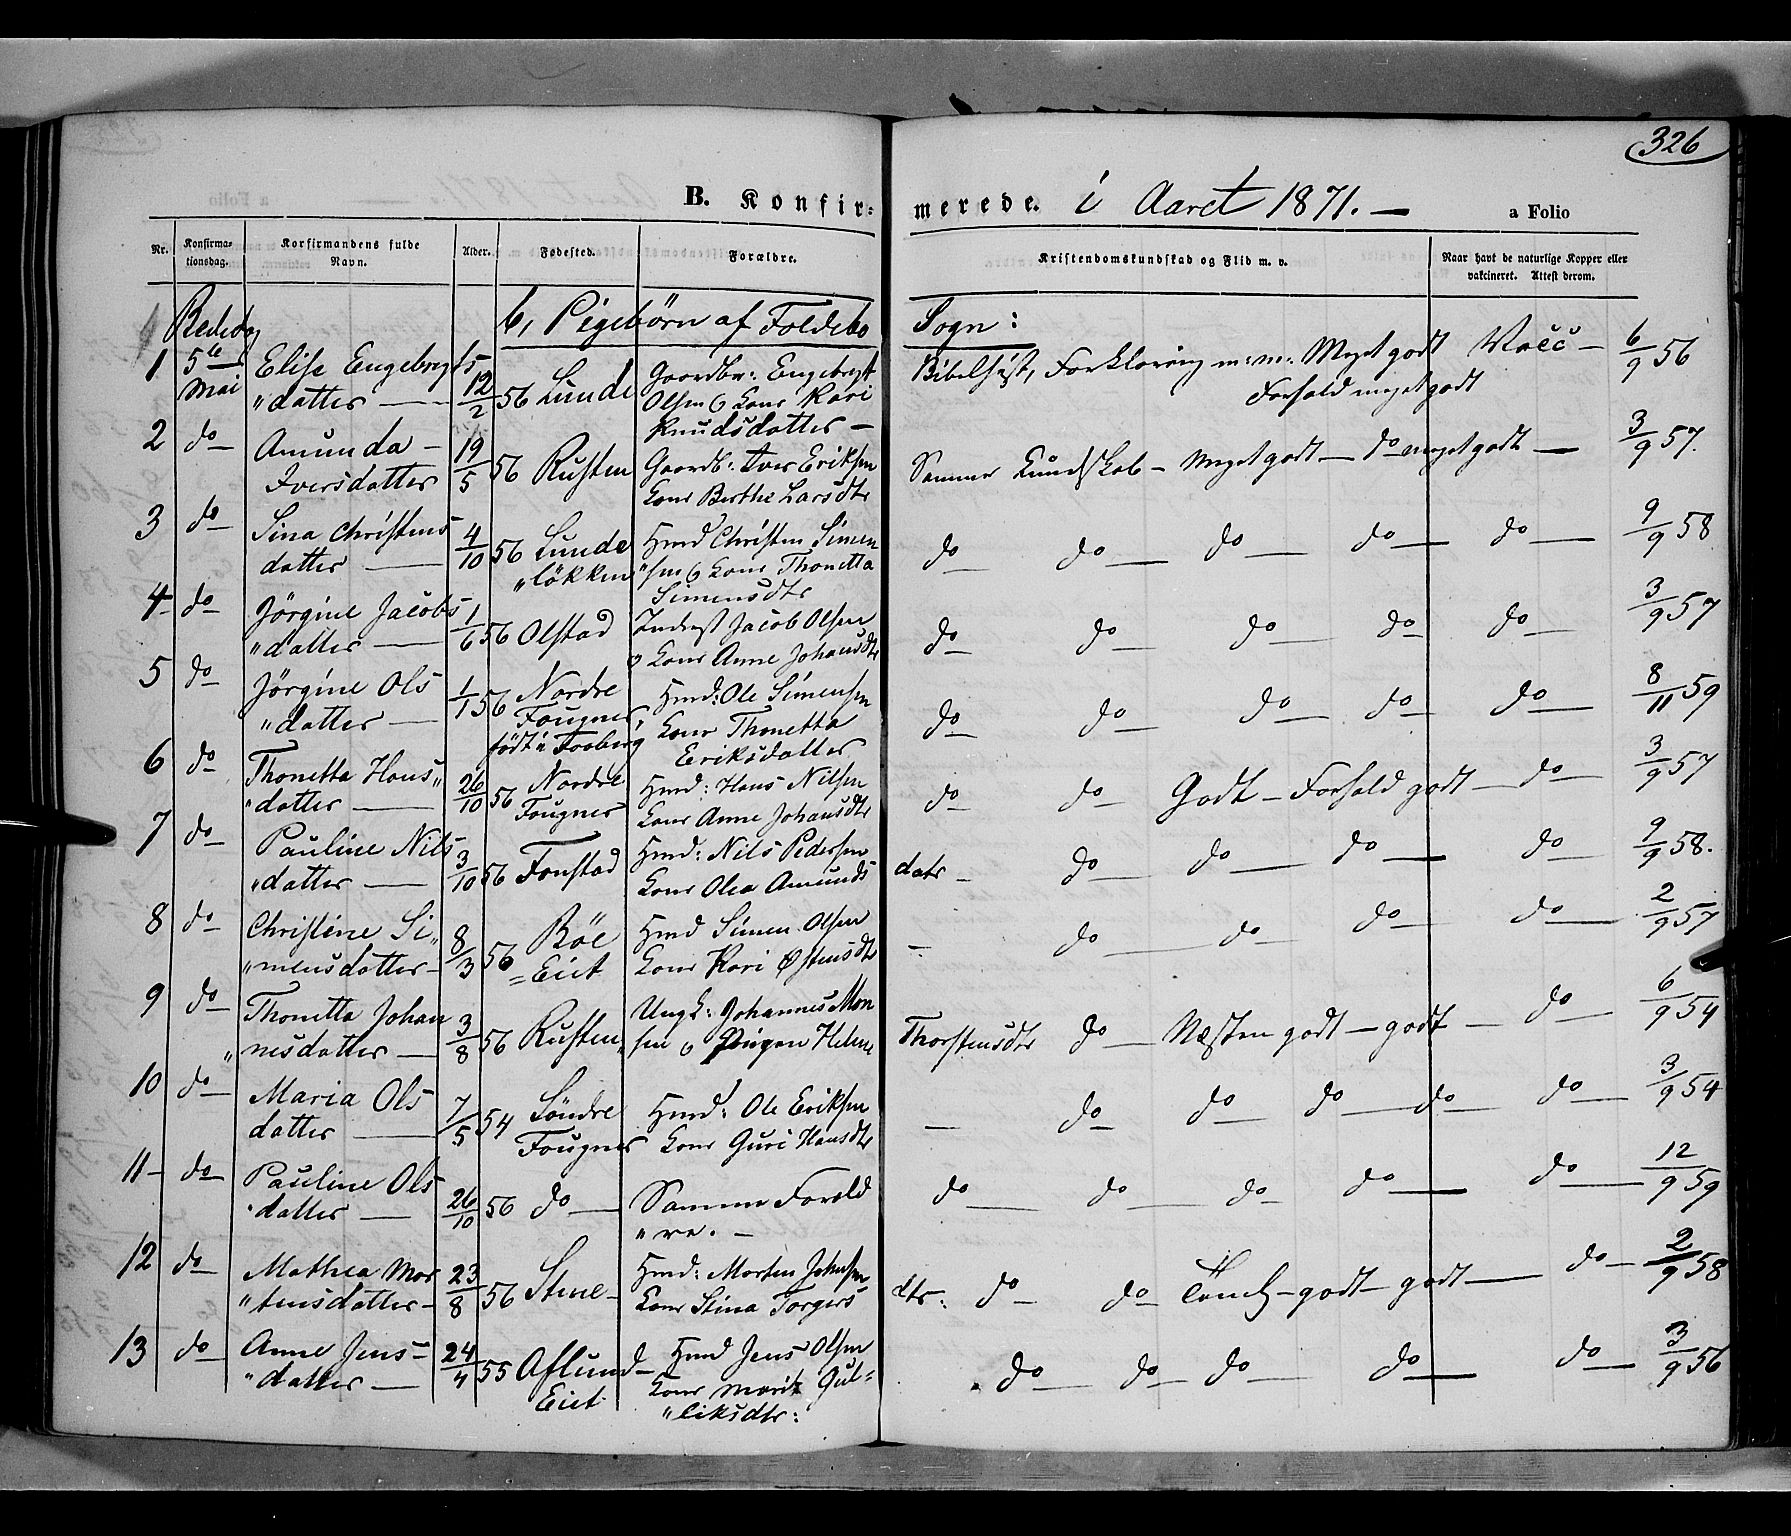 326
B. Konfir= merede. i Aaret 1871. — a Folio
Nr. Konfirma-tionsdag. Korfirmandens fulde Navn. Alder. Fødested. Forældre. Kristendomskundskab og Flid m. v. Naar havt de naturlige Kopper eller vakcineret. Attest derom.
b, Pigebörn af Foldebo Sogn:
Bededag
1 5te Mai Elise Engebregts 12/2 56 Lunde Gaardbr: Engebregt Bibelhist, Forklaring m: m: Meget godt Vacc — 6/9 56
"datter — Olsen o Kone Kari Forhold meget godt
Knudsdatter —
2 do Amunda — 19/5 56 Rusten Gaardb: Iver Eriksen Samme Kundskab — Meget godt — do meget godt — 3/9 57.
Iversdatter Kone Berthe Larsdtr
3 do Sina Christens 4/10 56 Lunde Hmd Christen Simen do do do do do 9/9 58
datter — "lökken "sen o Kone Thonetta
Simensdtr
4 do Jörgine Jacobs 1/6 56 Olstad Inderst Jacob Olsen do do do do do 3/9 57
"datter — o Kone Anne Johansdtr
5 do Jörgine Ols 1/1 56 Nordre Hmd: Ole Simensen do do do do do 8/11 59
"datter — Fougner, Kone Thonetta
födt i Faaberg Eriksdatter
6 do Thonetta Hans" 26/10 56 Nordre Hmd: Hans Nilsen do do Godt — Forhold godt — do 3/9 57
"datter — Fougner Kone Anne Johansdtr
7 do Pauline Nils 3/10 56 Fonstad Hmd: Nils Pedersen do do do do 9/9 58.
"datter — Kone Olea Amunds datr —
8 do Christine Si" 8/3 56 Böe Hmd Simen Olsen — do do do do 2/9 57
"mensdatter — = Eiet Kone Kari Østensdtr
9 do Thonetta Johan 3/8 56 Rusten Ungk: Johannes Mon do Næsten godt — godt — do 6/9 54
"nesdatter — sen o Pigen Helene Thorstensdtr
10 do Maria Ols 7/5 54 Söndre Hmd: Ole Eriksen — do do do do do 3/9 54
datter — Fougner Kone Guri Hansdtr
11 — do Pauline Ols 26/10 56 do — Samme Foræld do do do do do 12/9 59
"datter — "re. —
12 do Mathea Mor 23/8 56 Stine — Hmd: Morten Johnsen do do godt — godt — do 2/9 58
"tensdatter — Kone Stina Torgers dtr:
13 do Anne Jens — 24/4 55 Aflund — Hmd Jens Olsen do do do do do 3/9 56
"datter — Eiet Kone Marit Gul=
"liksdtr: